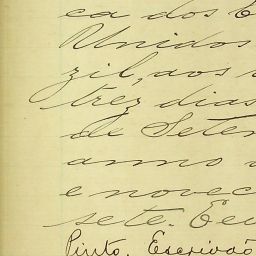 ca dos E
Unidos
zil, aos v
trez dias
de Setem
anno
e novec
sete. Eeu
Pinto, Escrivão